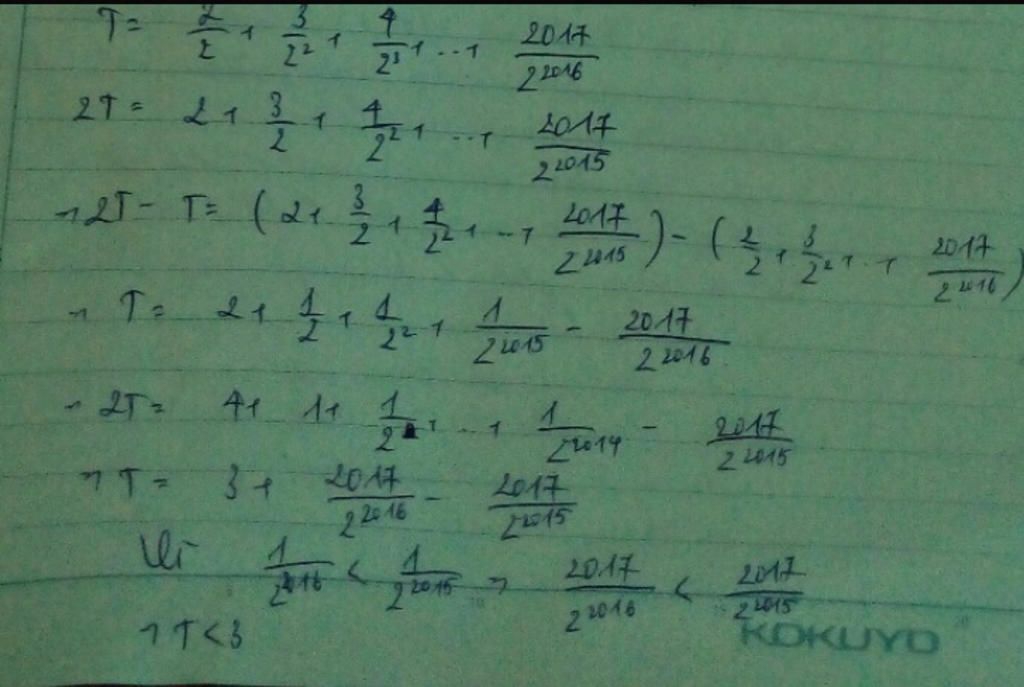 T = 2/2 + 3/2² + 4/2³ + ... + 2017/2²⁰¹⁶
2T = 2 + 3/2 + 4/2² + ... + 2017/2²⁰¹⁵
→ 2T - T = (2 + 3/2 + 4/2² + ... + 2017/2²⁰¹⁵) - (2/2 + 3/2² + ... + 2017/2²⁰¹⁶)
→ T = 2 + 1/2 + 1/2² + 1/2²⁰¹⁵ - 2017/2²⁰¹⁶
→ 2T = 4 + 1 + 1/2 + ... + 1/2²⁰¹⁴ - 2017/2²⁰¹⁵
→ T = 3 + 2017/2²⁰¹⁶ - 2017/2²⁰¹⁵
1/2²⁰¹⁶ < 1/2²⁰¹⁵ → 2017/2²⁰¹⁶ < 2017/2²⁰¹⁵
→ T < 3
KOKUYO